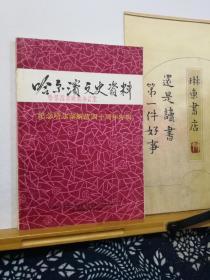 哈尔滨文史资料
纪念哈尔滨解放四十周年专辑
琳琅书店
还是读书
第一件好事